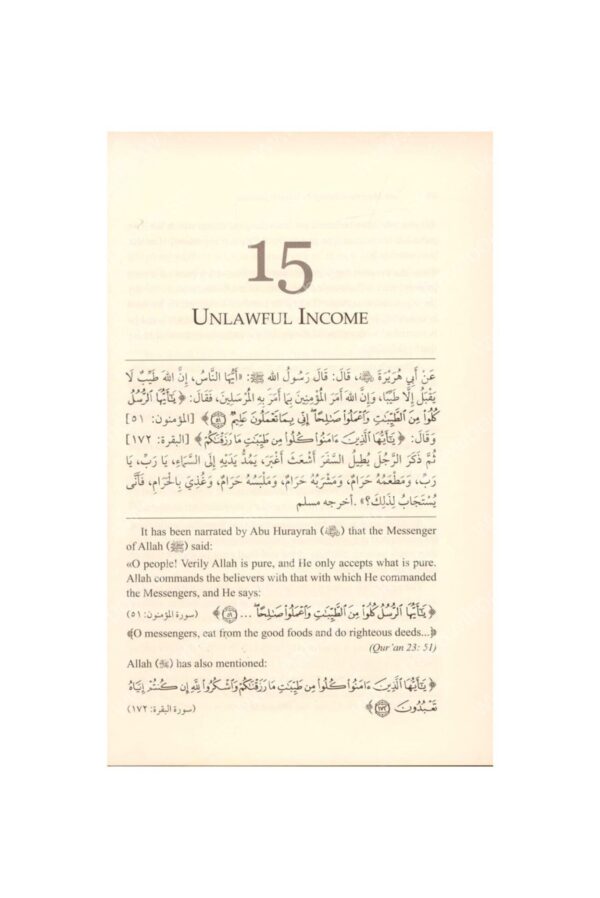 15
UNLAWFUL INCOME
عَنْ أَبِي هُرَيْرَةَ ﵁، قَالَ: قَالَ رَسُولُ اللهِ ﷺ: «أَيُّهَا النَّاسُ، إِنَّ اللهَ طَيِّبٌ لَا
يَقْبَلُ إِلَّا طَيِّبًا، وَإِنَّ اللهَ أَمَرَ الْمُؤْمِنِينَ بِمَا أَمَرَ بِهِ الْمُرْسَلِينَ، فَقَالَ: ﴿يَٰٓأَيُّهَا ٱلرُّسُلُ
كُلُوا۟ مِنَ ٱلطَّيِّبَٰتِ وَٱعْمَلُوا۟ صَٰلِحًا ۖ إِنِّى بِمَا تَعْمَلُونَ عَلِيمٌ ۝٥١﴾ [المؤمنون: ٥١]
وَقَالَ: ﴿يَٰٓأَيُّهَا ٱلَّذِينَ ءَامَنُوا۟ كُلُوا۟ مِن طَيِّبَٰتِ مَا رَزَقْنَٰكُمْ﴾ [البقرة: ١٧٢]
ثُمَّ ذَكَرَ الرَّجُلَ يُطِيلُ السَّفَرَ أَشْعَثَ أَغْبَرَ، يَمُدُّ يَدَيْهِ إِلَى السَّمَاءِ، يَا رَبِّ، يَا
رَبِّ، وَمَطْعَمُهُ حَرَامٌ، وَمَشْرَبُهُ حَرَامٌ، وَمَلْبَسُهُ حَرَامٌ، وَغُذِيَ بِالْحَرَامِ، فَأَنَّى
يُسْتَجَابُ لِذَلِكَ؟». أخرجه مسلم
It has been narrated by Abu Hurayrah (﵁) that the Messenger
of Allah (ﷺ) said:
«O people! Verily Allah is pure, and He only accepts what is pure.
Allah commands the believers with that with which He commanded
the Messengers, and He says:
﴿يَٰٓأَيُّهَا ٱلرُّسُلُ كُلُوا۟ مِنَ ٱلطَّيِّبَٰتِ وَٱعْمَلُوا۟ صَٰلِحًا ۖ ... ۝٥١﴾ (سورة المؤمنون: ٥١)
﴾O messengers, eat from the good foods and do righteous deeds...﴿
(Qur'an 23: 51)
Allah (ﷻ) has also mentioned:
﴿يَٰٓأَيُّهَا ٱلَّذِينَ ءَامَنُوا۟ كُلُوا۟ مِن طَيِّبَٰتِ مَا رَزَقْنَٰكُمْ وَٱشْكُرُوا۟ لِلَّهِ إِن كُنتُمْ إِيَّاهُ
تَعْبُدُونَ ۝١٧٢﴾ (سورة البقرة: ١٧٢)